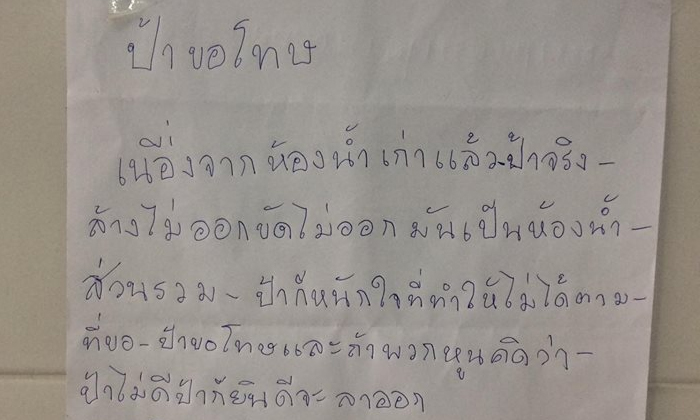 ป้าขอโทษ
เนื่องจากห้องน้ำเก่าแล้วป้าจริง -
ล้างไม่ออกขัดไม่ออก มันเป็นห้องน้ำ -
ส่วนรวม - ป้าก็หนักใจที่ทำให้ไม่ได้ตาม -
ที่ขอ - ป้าขอโทษและถ้าพวกหนูคิดว่า -
ป้าไม่ดีป้าก็ยินดีจะ ลาออก